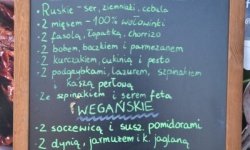 • Ruskie - ser, ziemniaki, cebula
• Z mięsem - 100% wołowinki
• Z fasolą, łopatką, chorizo
• Z bobem, boczkiem i parmezanem
• Z kurczakiem, cukinią i pesto
• Z podgrzybkami, lazurem, szpinakiem
i kaszą perłową
Ze szpinakiem i serem feta
WEGAŃSKIE
• Z soczewicą i susz. pomidorami
• Z dynią, jarmużem i k. jaglaną